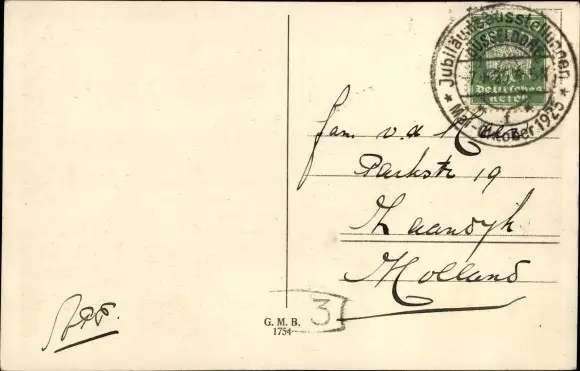 Jubiläumsausstellungen
DÜSSELDORF
Deutsches
Reich
f
* Mai-Oktober 1925 *
Fam v. d.
Parkstr 19
Zaandyk
Holland
3
G. M. B.
1754